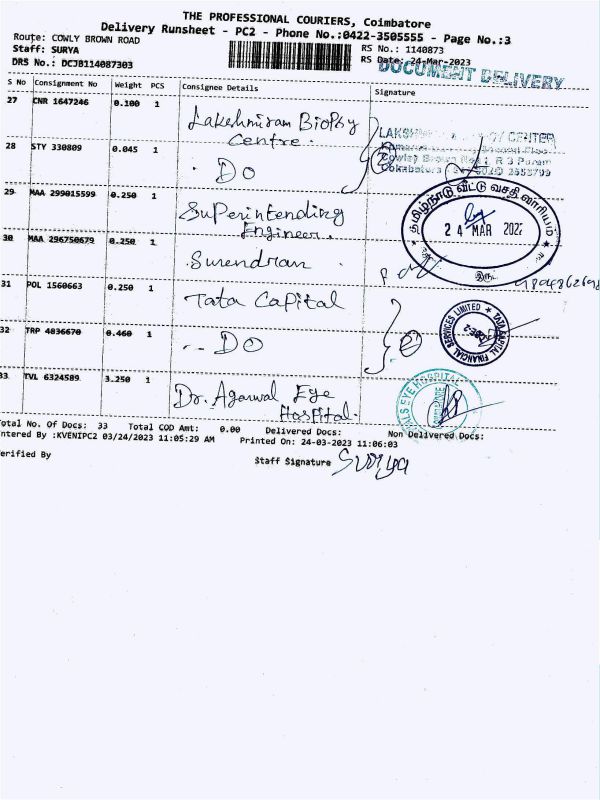 THE PROFESSIONAL COURIERS, Coimbatore
Delivery Runsheet - PC2 - Phone No.:0422-3505555 - Page No.:3
Route: COWLY BROWN ROAD
RS No.: 1140873
Staff: SURYA
RS Date: 24-Mar-2023
DRS No.: DCJB114087303
DOCUMENT DELIVERY
S No Consignment No Weight PCS Consignee Details Signature
27 CNR 1647246 0.100 1 Lakshmiram Biopsy
Centre.
28 STY 330809 0.045 1 DO
CENTER
Cowley Brown
29 MAA 299015599 0.250 1 Superintending
Engineer.
தமிழ்நாடு வீட்டு வசதி வாரியம்
24 MAR
30 MAA 296750679 0.250 1 Surendran
31 POL 1560663 0.250 1 Tata Capital
TATA CAPITAL FINANCIAL SERVICES LIMITED
32 TRP 4836670 0.460 1 DO
33 TVL 6324589 3.250 1 Dr. Agarwal Eye
Hospital.
EYE HOSPITAL
Total No. Of Docs: 33 Total COD Amt: 0.00 Delivered Docs: Non Delivered Docs:
ntered By :KVENIPC2 03/24/2023 11:05:29 AM Printed On: 24-03-2023 11:06:03
erified By
Staff Signature Surya